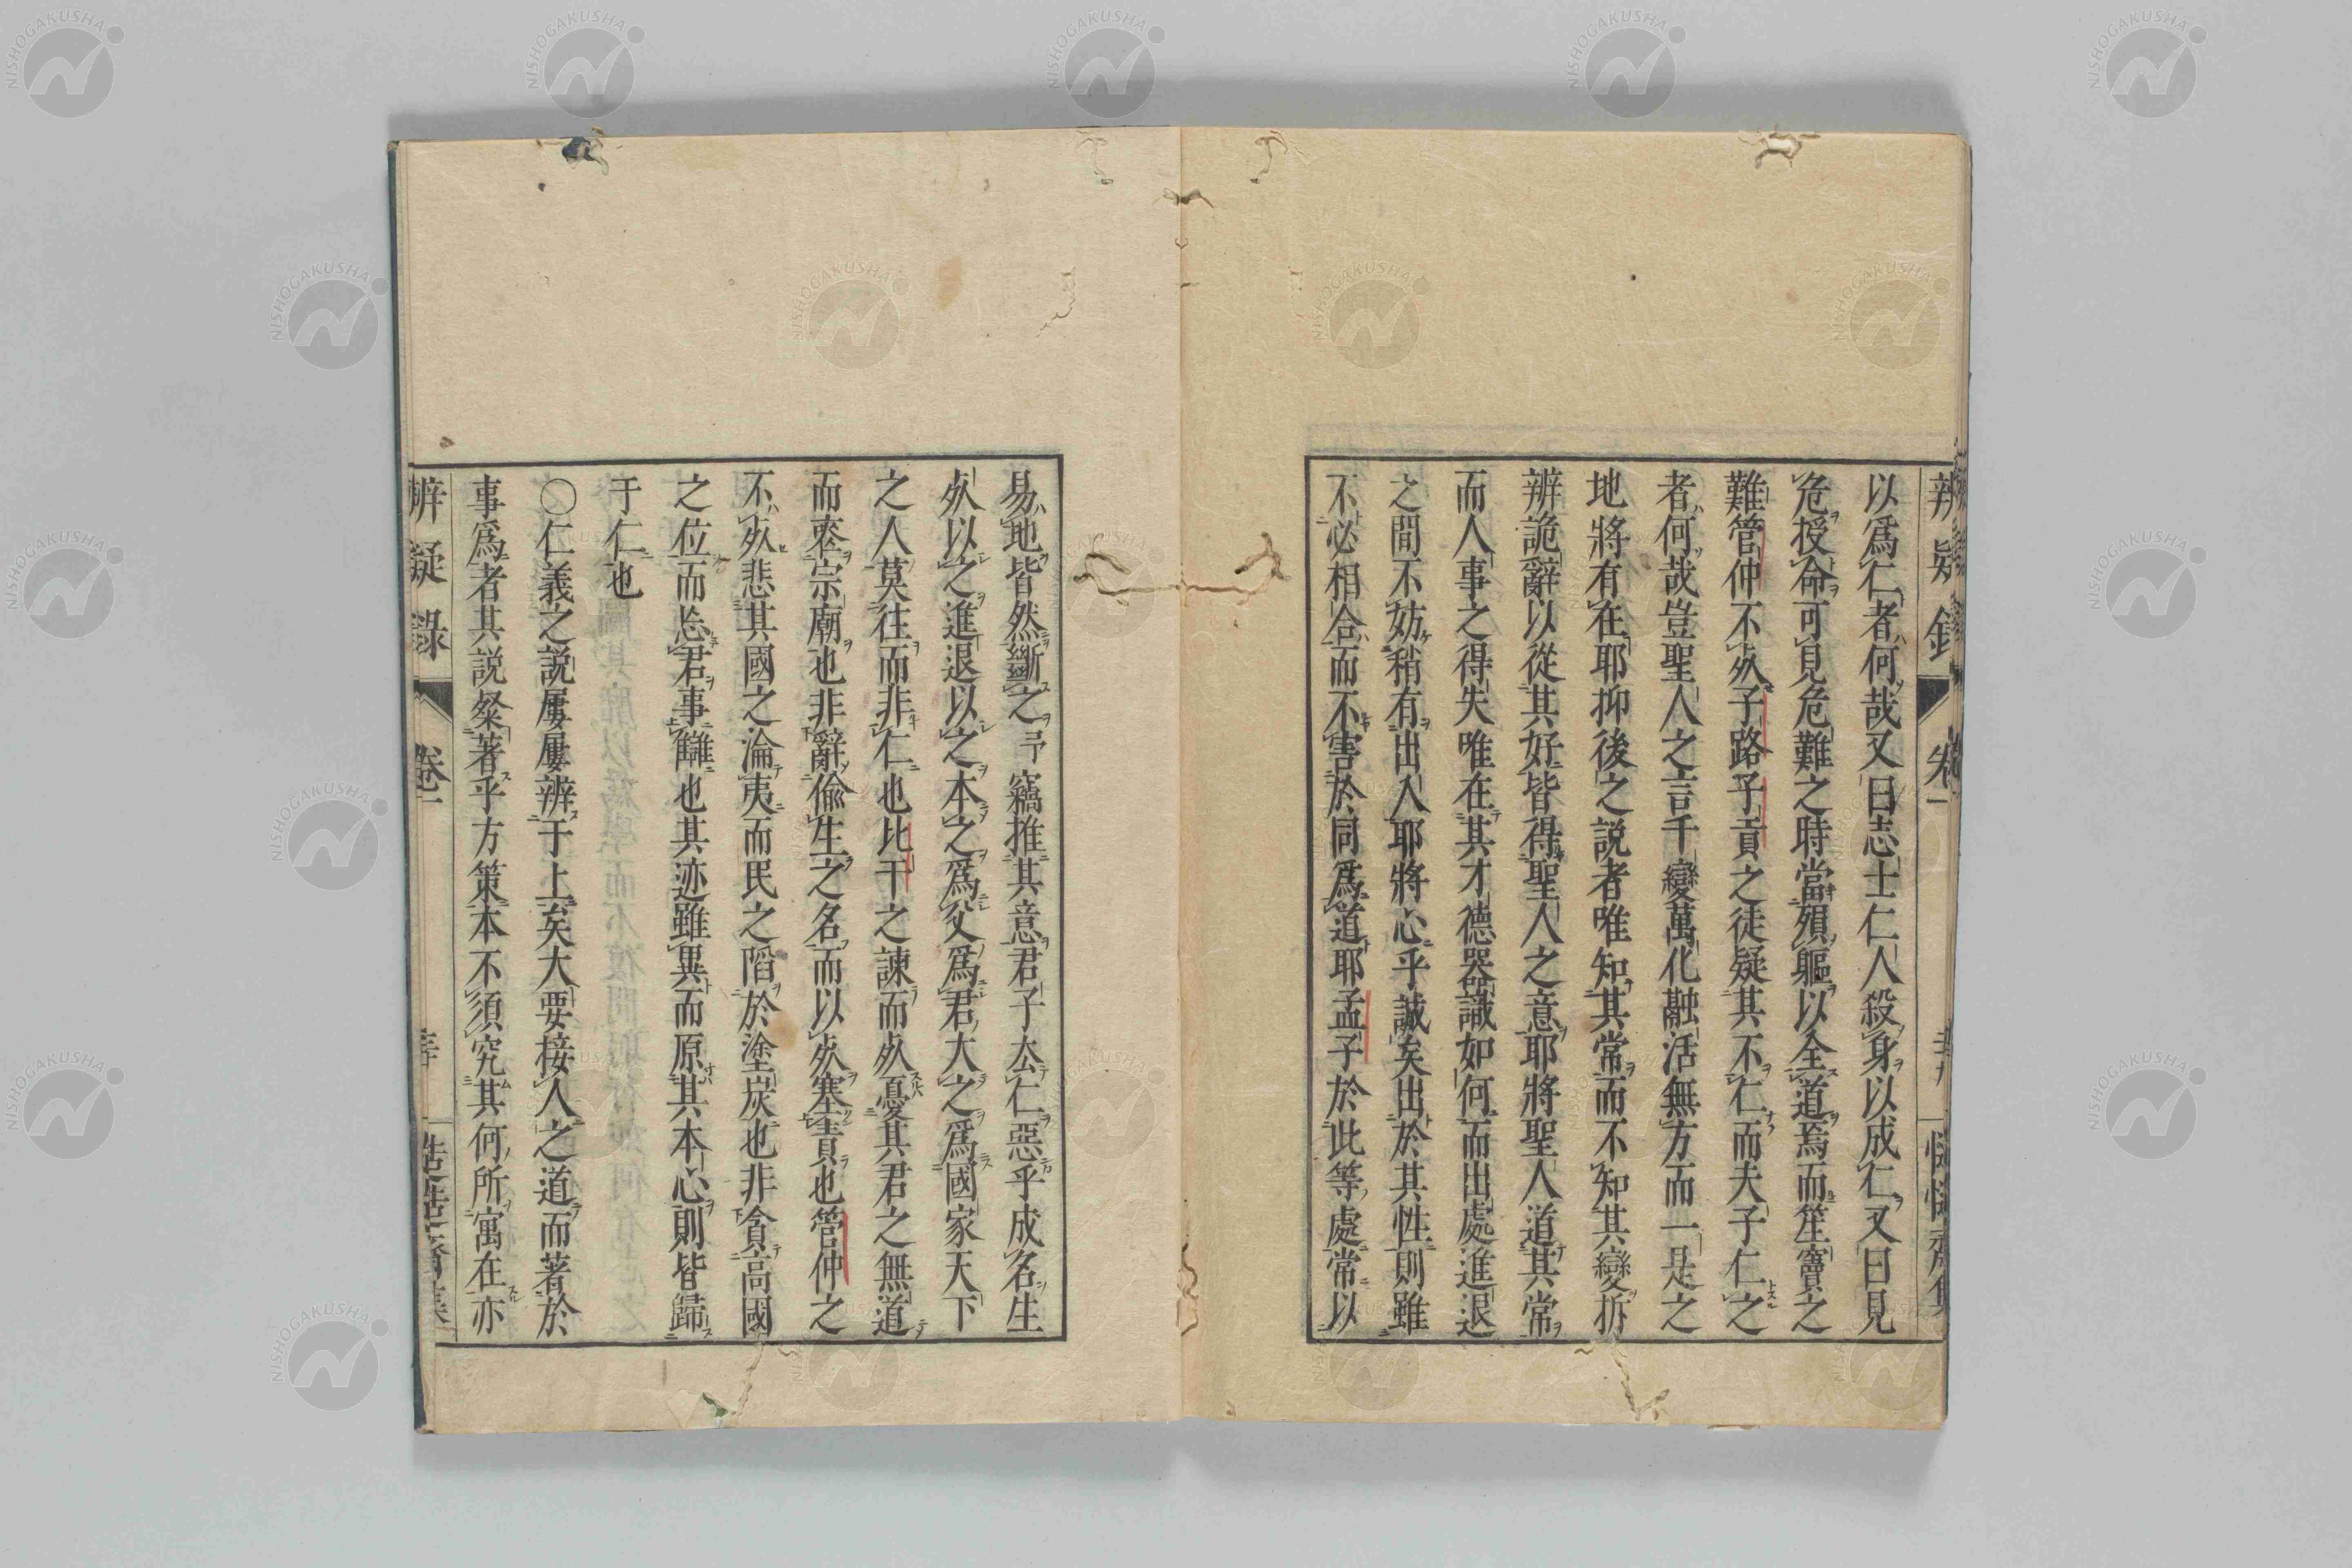 以爲仁者何哉又曰志士仁人殺身以成仁又曰見
危授命可見危難之時當殞軀以全道焉而筌竇之
難管仲不死子路子貢之徒疑其不仁而夫子仁之
者何哉豈聖人之言千變萬化融活無方而一是之
地將有在耶抑後之説者唯知其常而不知其變拆
辨詭辭以從其好皆得聖人之意耶將聖人道其常
而人事之得失唯在其才德器識如何而出處進退
之間不妨稍有出入耶將心乎誠矣出於其性則雖
不必相合而不害於同爲道耶孟子於此等處常以
易地皆然斷之予竊推其意君子厺仁惡乎成名生
死以之進退以之本之爲父爲君大之爲國家天下
之人莫往而非仁也比干之諫而死憂其君之無道
而來宗廟也非辭偸生之名而以死塞責也管仲之
不死悲其國之淪夷而民之陷於塗炭也非貪高國
之位而忘君事讎也其迹雖異而原其本心則皆歸
于仁也
〇仁義之説屢屢辨于上矣大要接人之道而著於
事爲者其説粲著乎方策本不須究其何所寓在亦
辨疑錄
卷一